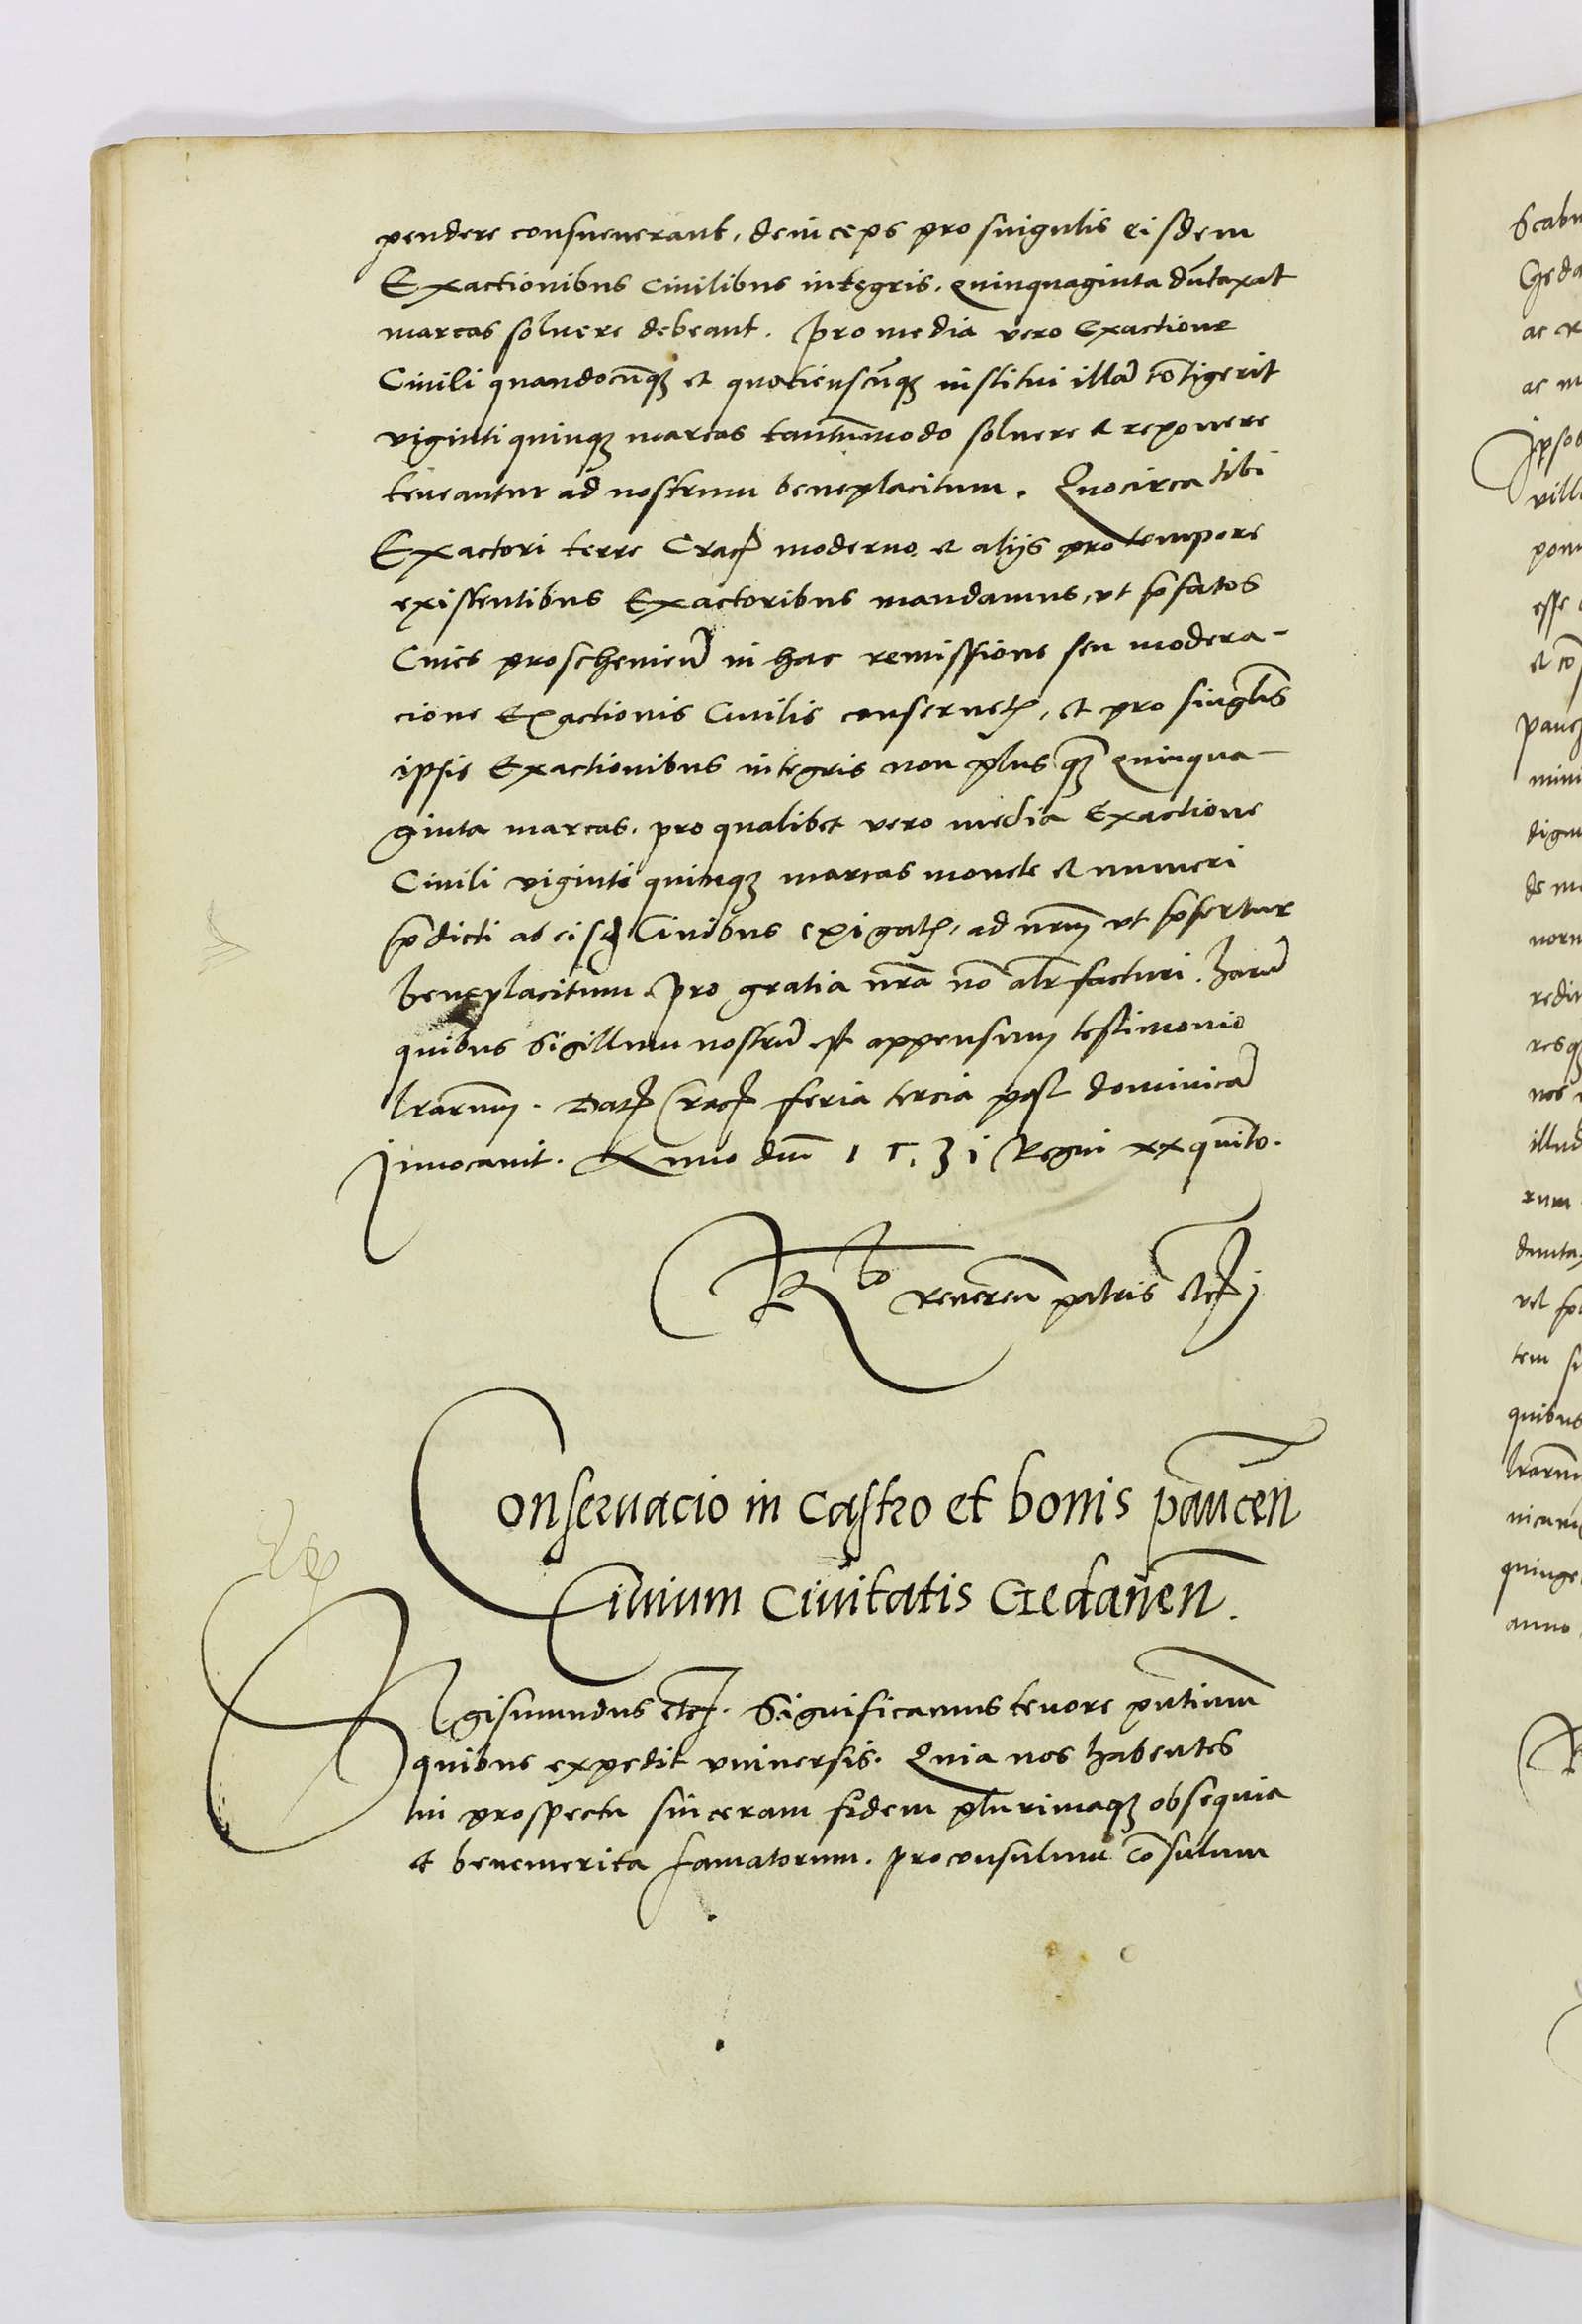 pendere consueuerant, deinceps pro singulis eisdem
Exactionibus Ciuilibus integris. quinquaginta dūtaxat
marcas soluere debeant. pro media vero Exactione
Ciuili quandocūqꝫ et quotienscūqꝫ institui illā cōtigerit
viginti quinqꝫ marcas tantūmodo soluere et reponere
teneantur ad nostrum beneplacitum. Quocirca tibi
Exactori terre Cracꝭ moderno et alijs pro tempore
existentibus Exactoribus mandamus, vt p̄fatos
Ciues proschouieñ in hac remissione seu modera-
cione Exactionis Ciuilis conseruetꝭ, et pro singlīs
ipsis Exactionibus integris non plus qꝫ quinqua-
ginta marcas. pro qualibet vero media Exactione
Ciuili viginti quinqꝫ marcas monete et numeri
p̄dicti ab eisdꝫ Ciuibus exigatꝭ, ad nr̄m vt p̄fertur
beneplacitum. pro gratia nr̄a nō alr̄ facturi. harū
quibus Sigillum nostrū est appensum testimonio
lr̄arum. Datꝭ Cracꝭ feria tercia post dominicā
Inuocauit. Anno dnī 1531 Regni xx quīto.
Rº reueren patris etcꝭ
Conseruacio in Castro et bonis paucen̄
Ciuium Ciuitatis Gedaneñ.
Sigismundus etcꝭ. Significamus tenore pn̄tium
quibus expedit vniuersis. Quia nos habentes
in prospectu sinceram fidem plurimaqꝫ obsequia
et benemerita famatorum. proconsulum cōsulum
Scabi
Geda